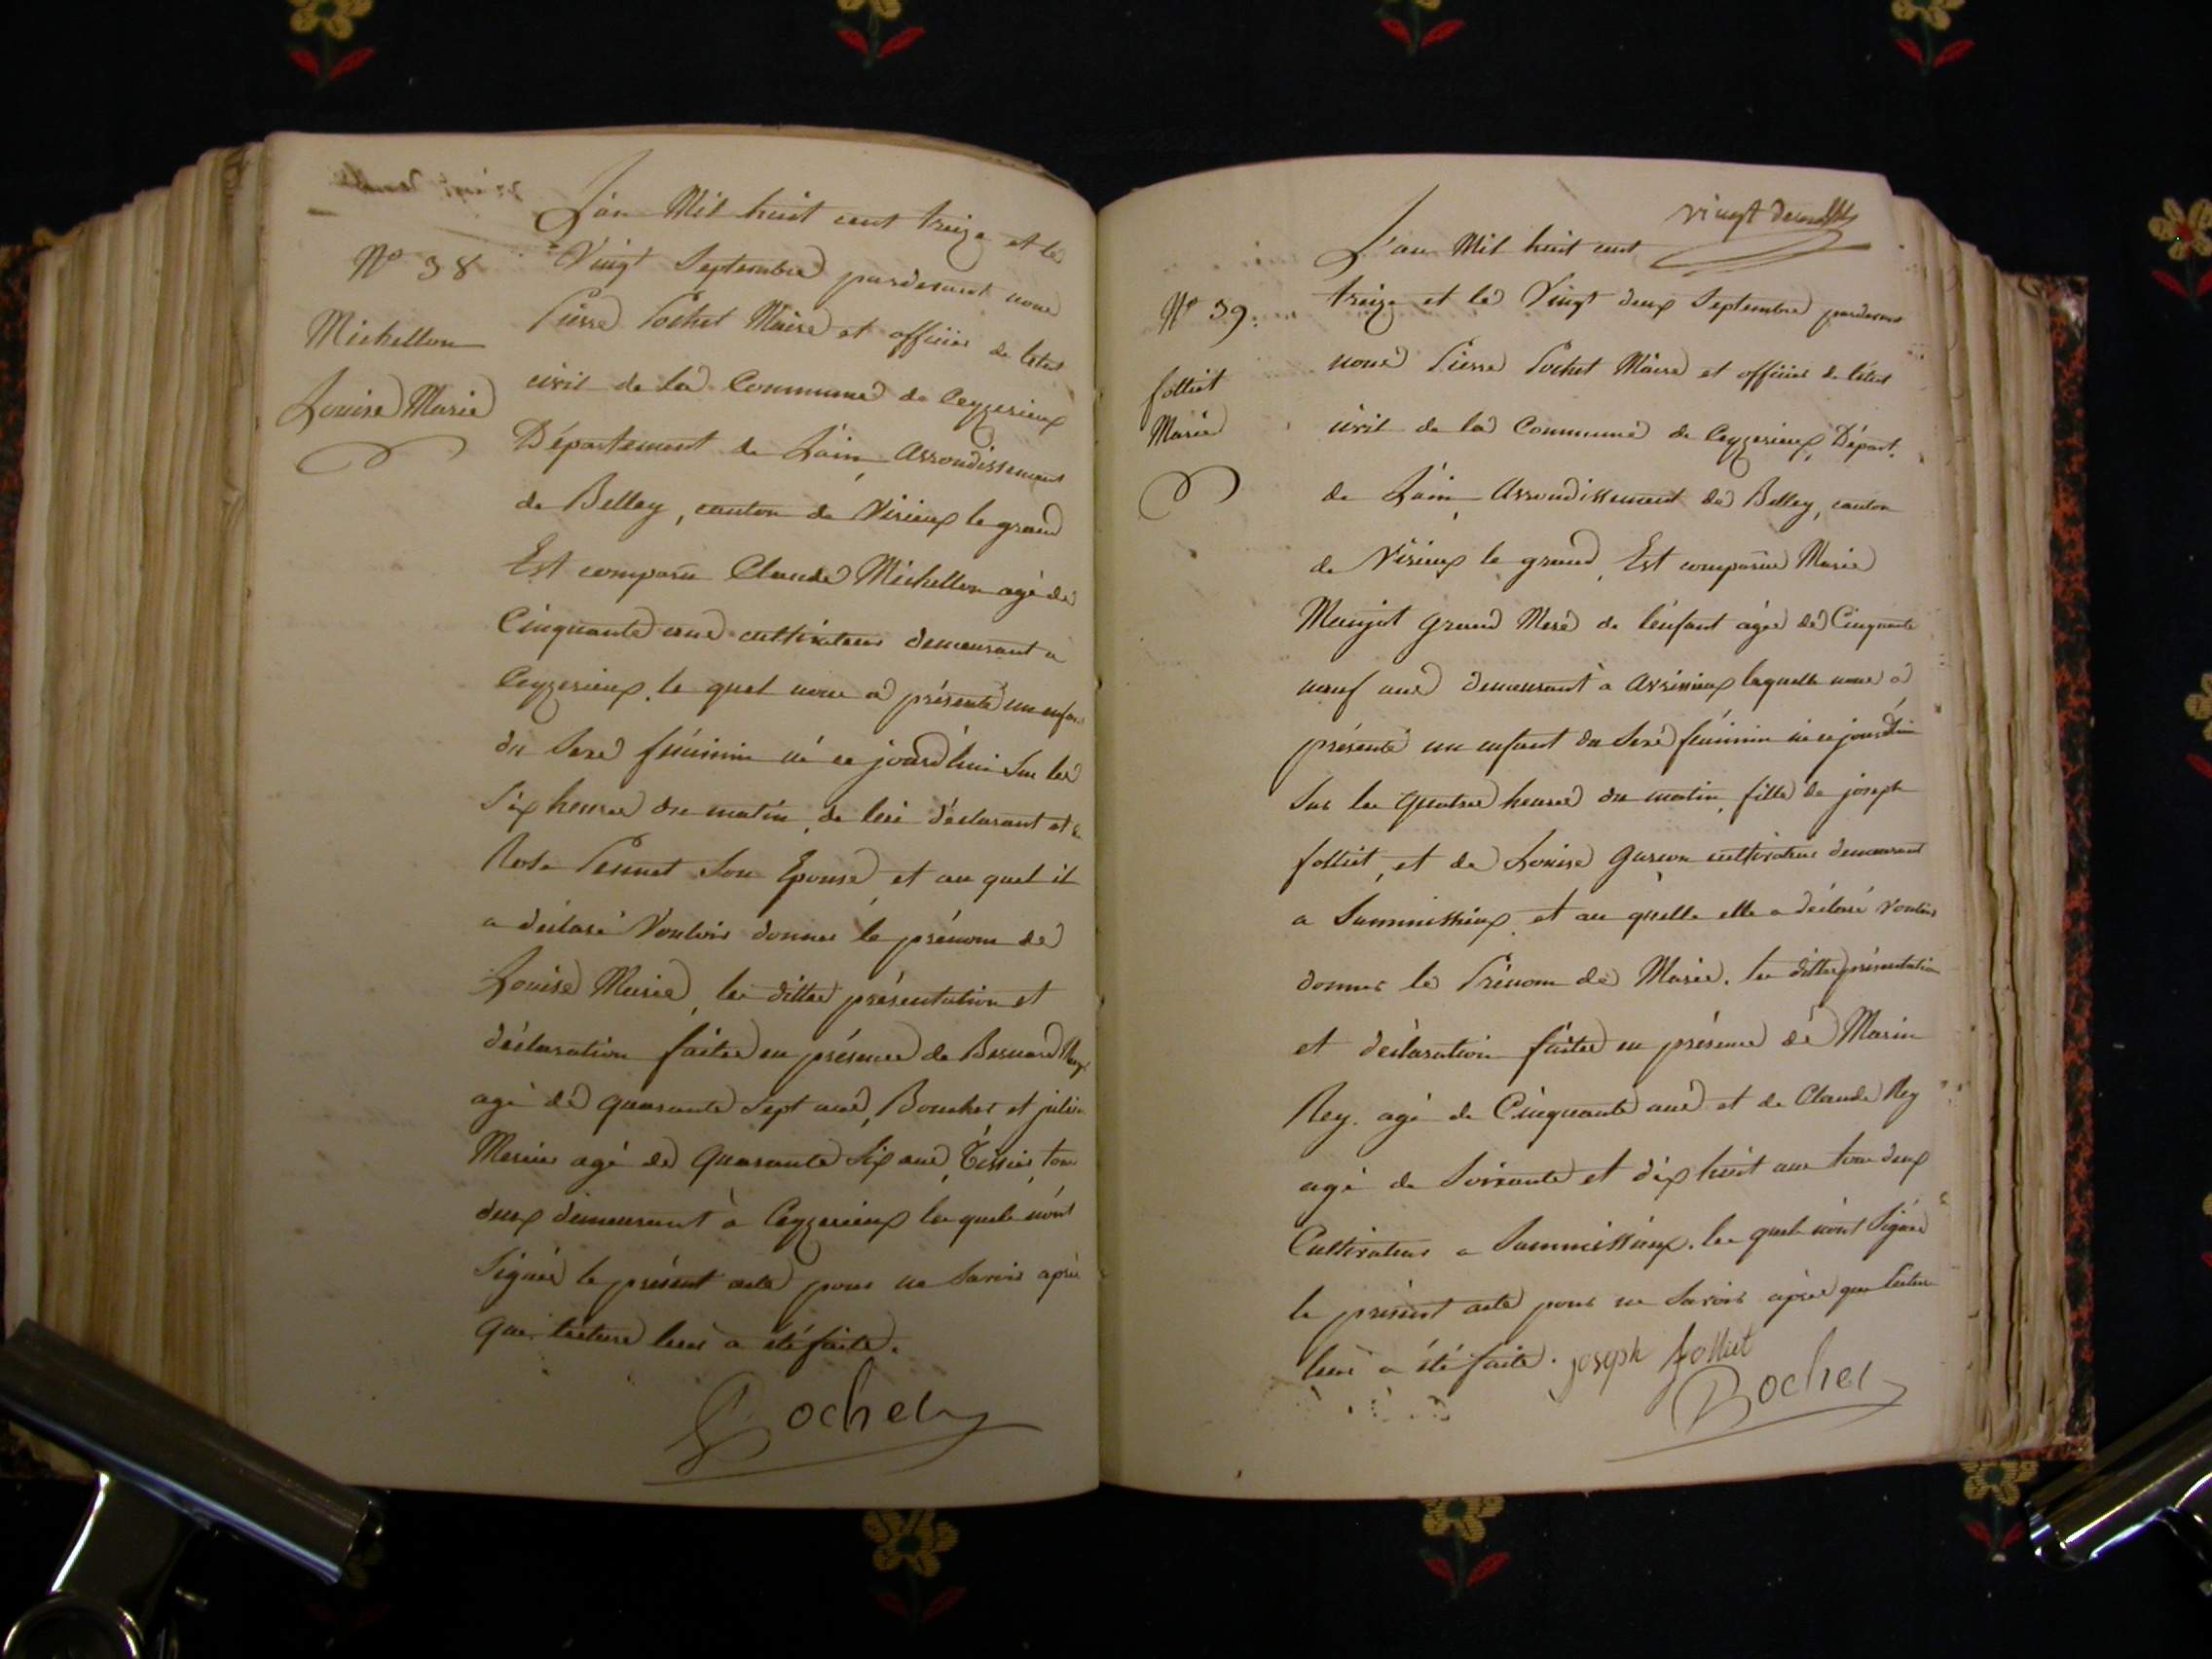 L'an Mil huit cent treize et le
N° 38
Vingt Septembre pardevant nous
Michellon
Pierre Pochet Maire et officier de l'état
Louise Marie
civil de la Commune de Ceyzerieux
Département de L'ain, arrondissement
de Belley, canton de Virieux le grand
Est comparu Claude Michellon agé de
Cinquante ans cultivateur demeurant a
Ceyzerieux, le quel nous a présenté un enfant
du Sexe féminin né ce jourd'hui Sur les
Six heures du matin, de lui déclarant et de
Rose Pennet Son Epouse, et au quel il
a déclaré Vouloir donner le prénom de
Louise Marie, les dittes présentation et
déclaration faites en présence de Bernard Rey
agé de quarante Sept ans, Boucher et julien
agé de Quarante Six ans, Tissier, tous
deux demeurant à Ceyzerieux les quels n'ont
Signés le présent acte pour ne Savoir après
que lecture leur a été faite.
Pochet
vingt
L'an Mil huit cent
N° 39.
treize et le Vingt deux Septembre pardevant
folliet
nous Pierre Pochet Maire et officier de l'état
Marie
civil de la Commune de Ceyzerieux, Départ.
de L'ain, Arrondissement de Belley, canton
de Virieux le grand, Est comparue Marie
Manjot grand Mere de l'enfant agée de Cinquante
neuf ans demeurant à avrissieux laquelle nous a
présenté un enfant du Sexe féminin né ce jourd'hui
Sur les Quatres heures du matin, fille de joseph
folliet, et de Louise cultivateurs demeurant
a et au quelle elle a déclaré Vouloir
donner le Prénom de Marie. les dittes présentation
et déclaration faites en présence de Marin
Rey. agé de Cinquante ans et de Claude Rey
agé de Soixante et dix huit ans tous deux
Cultivateurs a les quels n'ont Signés
le présent acte pour ne Savoir après que lecture
leur a été faite. joseph folliet
Pochet